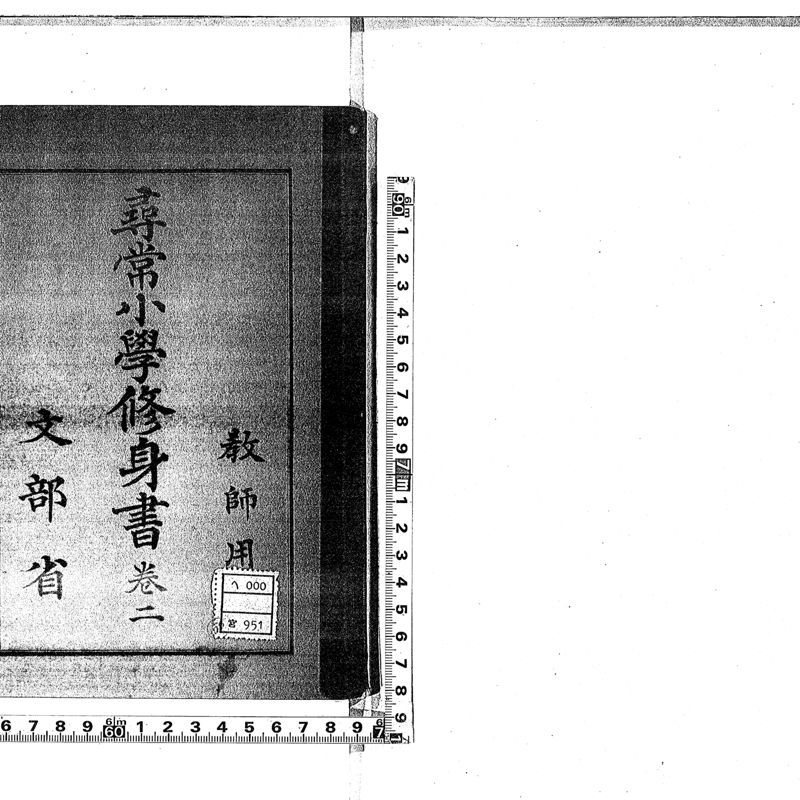 教師用
尋常小學修身書 卷二
文部省
へ 000
宮 951
9 6m 90 1 2 3 4 5 6 7 8 9 7m 1 2 3 4 5 6 7 8 9
6 7 8 9 6m 60 1 2 3 4 5 6 7 8 9